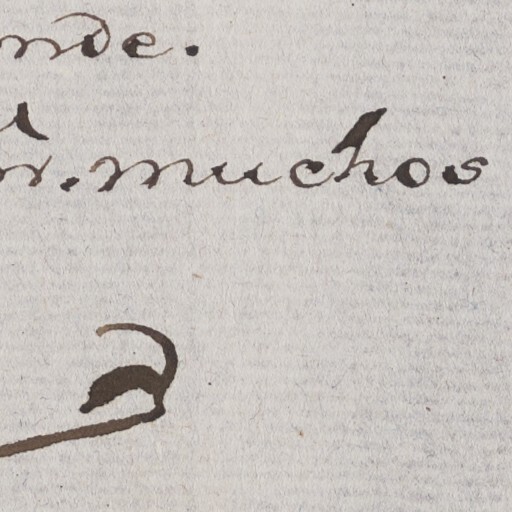 nde.
r. muchos